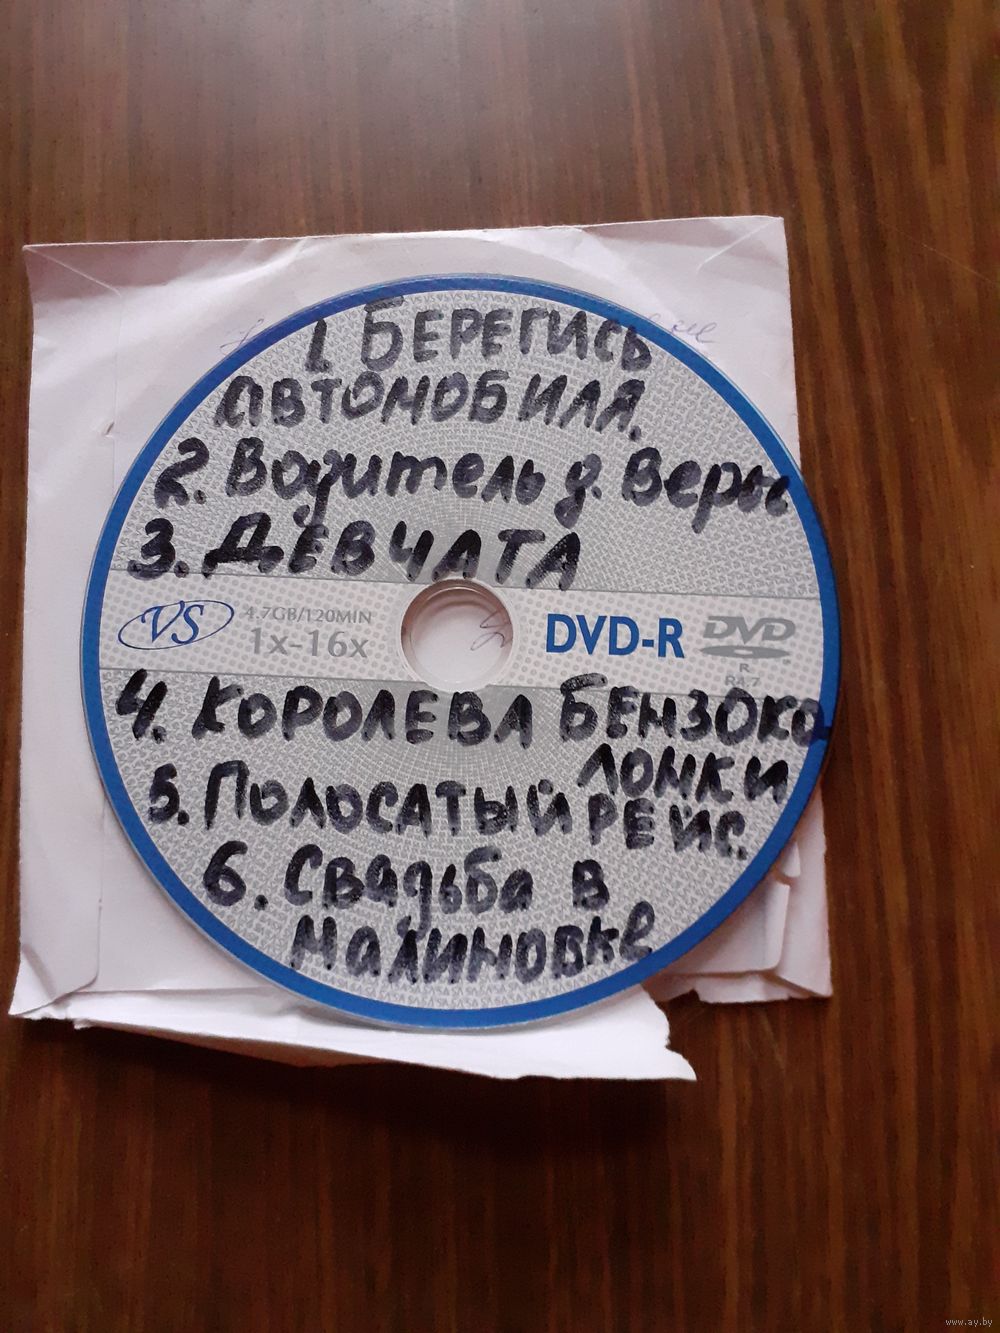 1. БЕРЕГИСЬ
АВТОМОБИЛЯ.
2. Водитель д. Веры
3. ДЕВЧАТА
VS 4.7GB/120MIN
1x-16x
DVD-R DVD
R
R4.7
4. КОРОЛЕВА БЕНЗОКО
ЛОНКИ
5. ПОЛОСАТЫЙ РЕЙС.
6. Свадьба в
Малиновке
www.ay.by